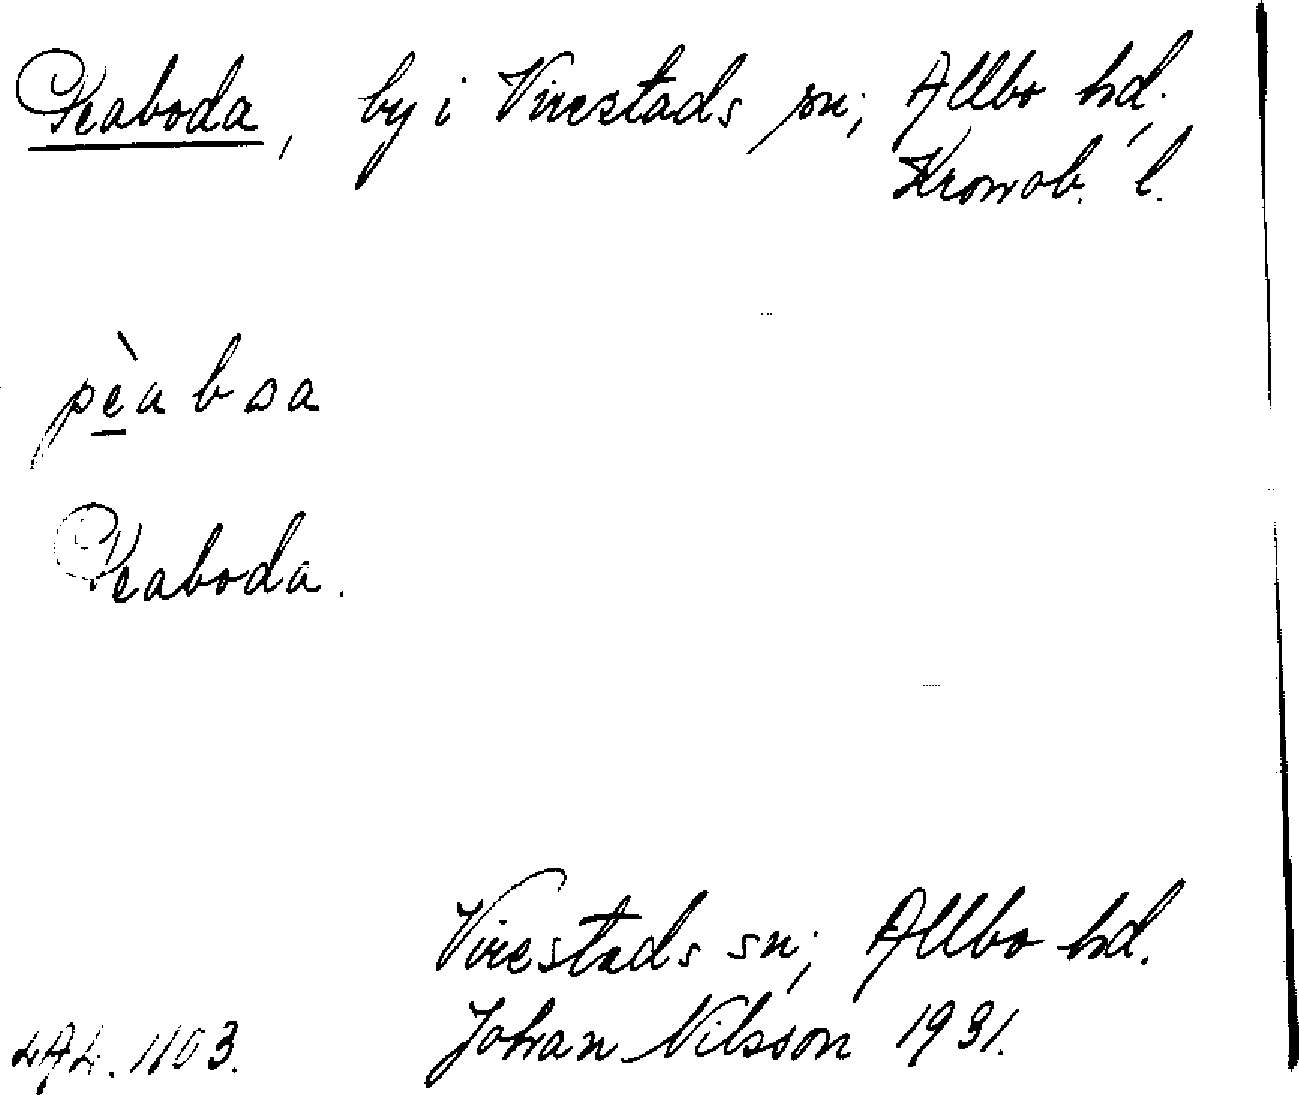 Peaboda, by i Virestads sn; Allbo hd.,
Kronob. l.
pèaboa
Peaboda.
Virestads sn; Allbo hd.
LAL. 1103. Johan Nilsson 1931.